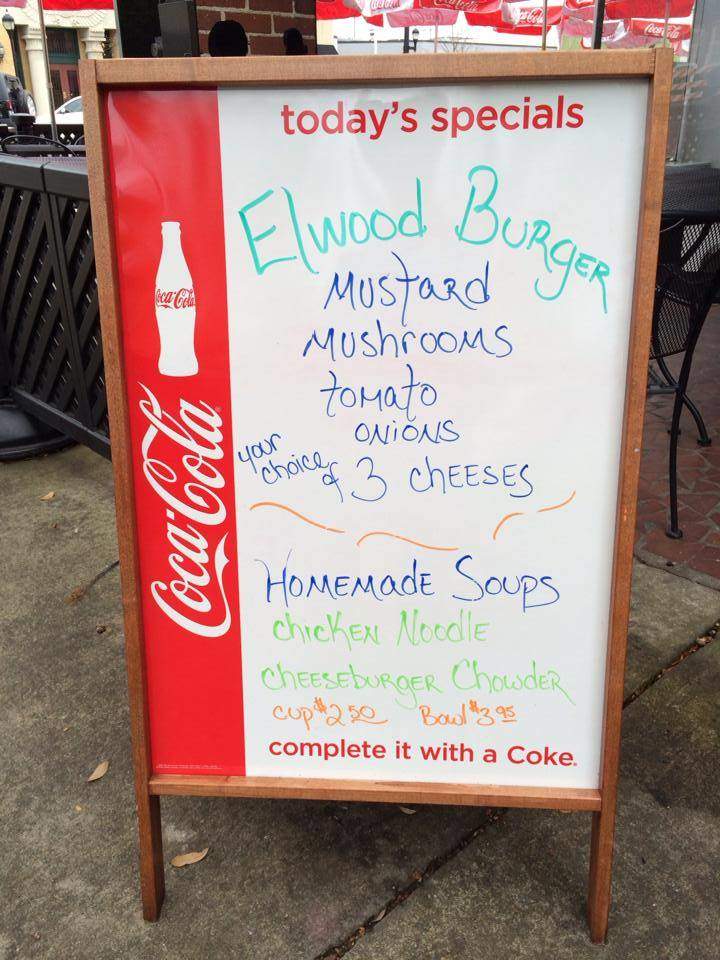 today's specials
Elwood Burger
Mustard
Mushrooms
tomato
onions
your choice of 3 cheeses
Homemade Soups
chicken Noodle
cheeseburger Chowder
cup $2.50 Bowl $3.95
complete it with a Coke.
Coca-Cola
Coca-Cola
Coca-Cola
Coca-Cola